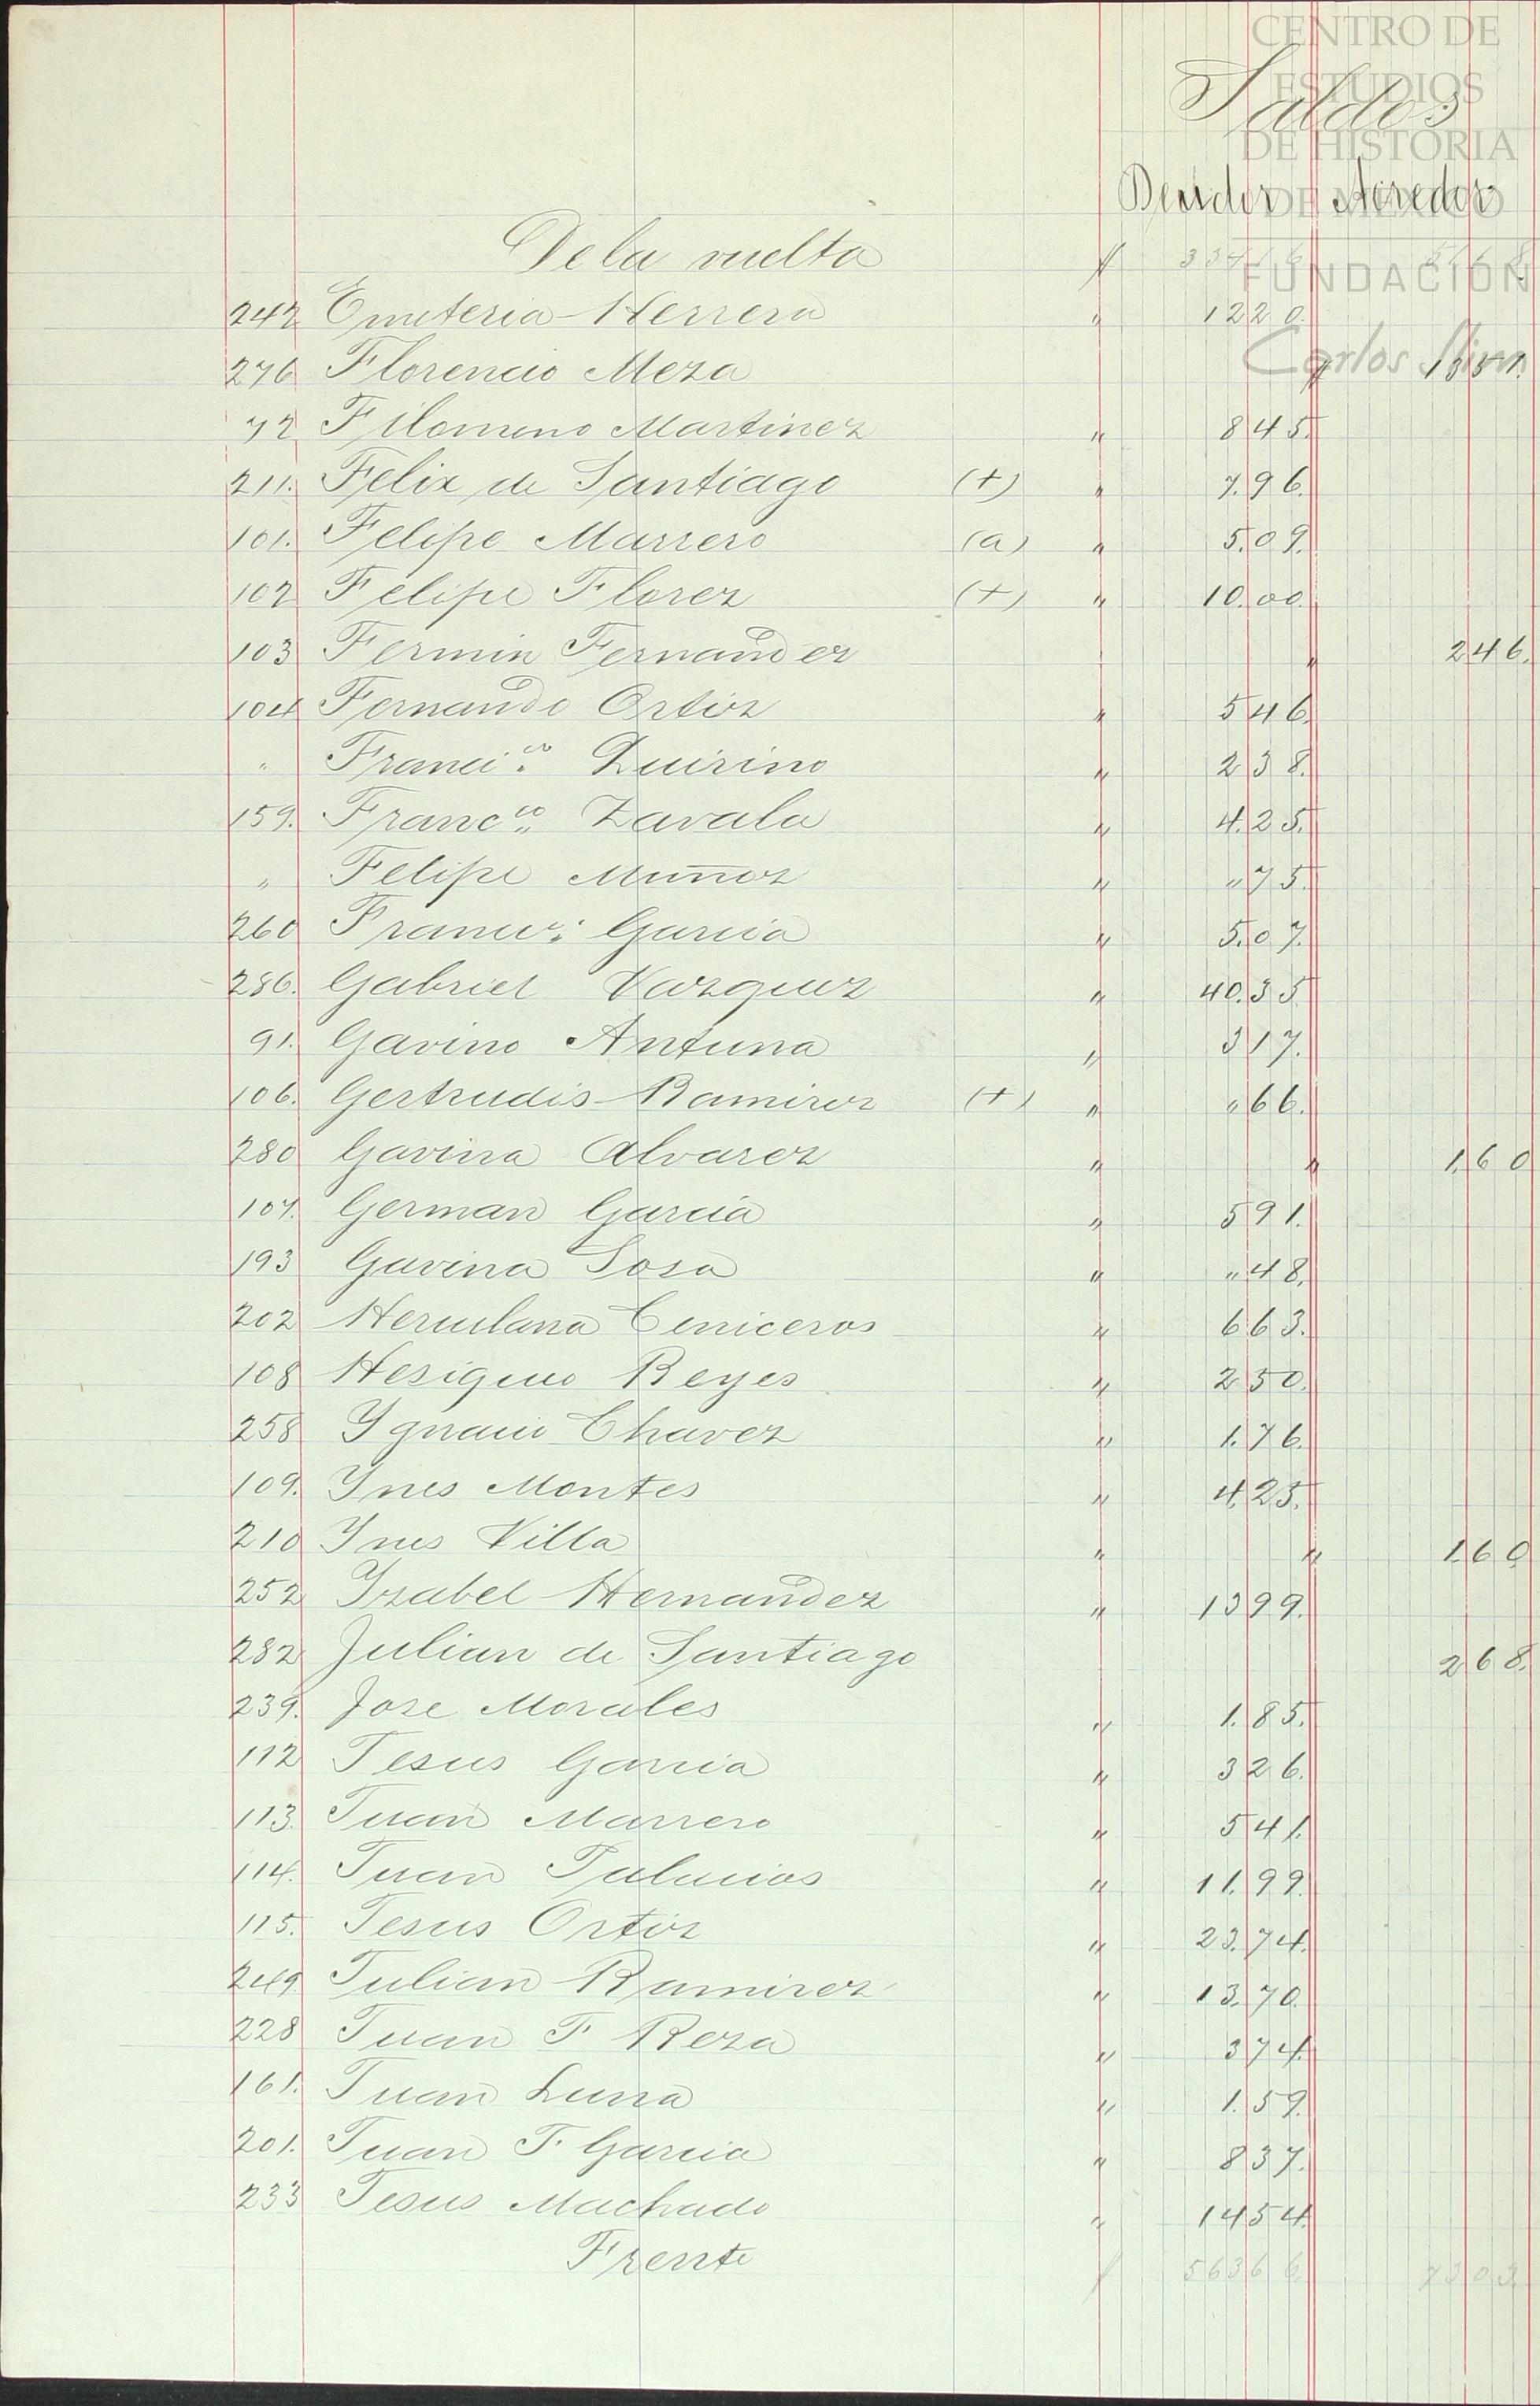 CENTRO DE
ESTUDIOS
DE HISTORIA
DE MÉXICO
FUNDACIÓN
Carlos Slim
Saldos
Deudor Acredor
De la vuelta $ 33416
242 Emeteria Herrera " 1220.
276 Florencio Meza $ 1351.
72 Filomeno Martinez " 845.
211. Felix de Santiago (+) " 7.96.
101. Felipe Marrero (a) " 5.09.
102 Felipe Florez (+) " 10.00.
103 Fermin Fernandez " 246.
104 Fernando Ortiz " 546.
" Franci.co Quirino " 238.
159. Franc.co Zavala " 4.25.
" Felipe Muñoz " "75.
260 Francc. Garcia " 5.07.
286. Gabriel Vazquez " 40.35
91. Gavino Antuna " 317.
106. Gertrudis Ramirez (+) " "66.
280 Gavina Alvarez " " 1.60
107. German Garcia " 591.
193 Gavina Sosa " "48.
202 Herculana Ceniceros " 663.
108 Hesiquio Reyes " 250.
258 Ygnacio Chavez " 1.76.
109. Ynes Montes " 4.25.
210 Ynes Villa " " 1.60
252 Yzabel Hernandez " 1399.
282 Julian de Santiago 268.
239. Jose Morales " 1.85.
112 Jesus Garcia " 326.
113. Juan Marrero " 541.
114. Juan Palacios " 11.99.
115. Jesus Ortiz " 23.74.
249. Julian Ramirez " 13.70.
228 Juan F Reza " 374.
161. Juan Luna " 1.59.
201. Juan F. Garcia " 837.
233 Jesus Machado " 1454.
Frente 56366. 7303